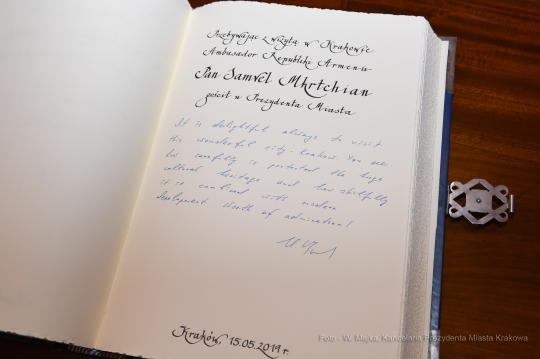 Przebywając z wizytą w Krakowie
Ambasador Republiki Armenii
Pan Samvel Mkrtchian
gościł u Prezydenta Miasta
It is delightful always to visit
this wonderful city - Krakow. You see
how carefully is protected the huge
cultural heritage and how skilfully
it is combined with modern
development. Worth of admiration!
Kraków, 15.05.2019 r.
Foto - W. Majka, Kancelaria Prezydenta Miasta Krakowa